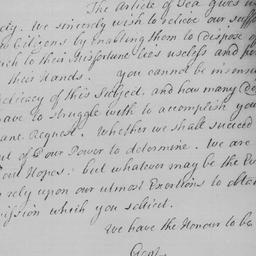 The Article of Tea gives us
We sincerely wish to relieve our suff
Citizens by enabling them to dispose of
to their Misfortune lies useless and
their Hands. You cannot be insens
delicacy of this Subject, and how many
have to struggle with to accomplish your
Request. Whether we shall succeed
out of our Power to determine. We are
our Hopes: but whatever may be the Ev
rely upon our utmost Exertions to obta
mission which you solicit.
We have the Honour to be
Gent